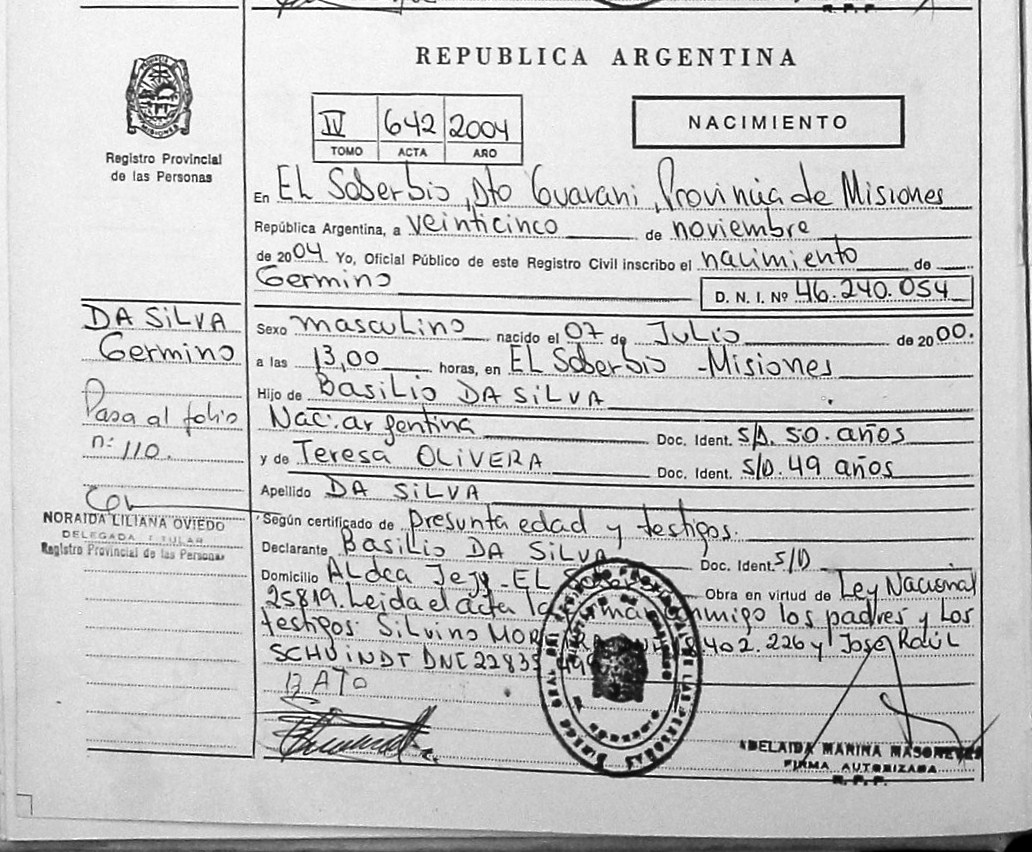 REPUBLICA ARGENTINA
MISIONES
Registro Provincial
de las Personas
IV 642 2004
TOMO ACTA AÑO
NACIMIENTO
En EL Soberbio, Dto Guarani, Provincia de Misiones
República Argentina, a veinticinco de noviembre
de 2004 Yo, Oficial Público de este Registro Civil inscribo el nacimiento de
Germino
D. N. I. Nº 46.240.054
DA SiLVA
Germino
Pasa al folio
nº 110.
NORAIDA LILIANA OVIEDO
DELEGADA TITULAR
Registro Provincial de las Personas
Sexo masculino nacido el 07 de Julio de 2000.
a las 13,00 horas, en EL Soberbio - Misiones
Hijo de Basilio DA SiLVA
Nac. argentina Doc. Ident. S/D. 50. años
y de Teresa OLIVERA Doc. Ident. S/D. 49 años
Apellido DA SiLVA
Según certificado de presunta edad y testigos.
Declarante Basilio DA SiLVA Doc. Ident. S/D
Domicilio Aldea Jejy - EL Obra en virtud de Ley Nacional
25819. Leida el acta la los padres y Los
testigos: Silvino 402.226 y José Raúl
SCHVINDT DNI 22835
FIRMA AUTORIZADA
R.P.P.